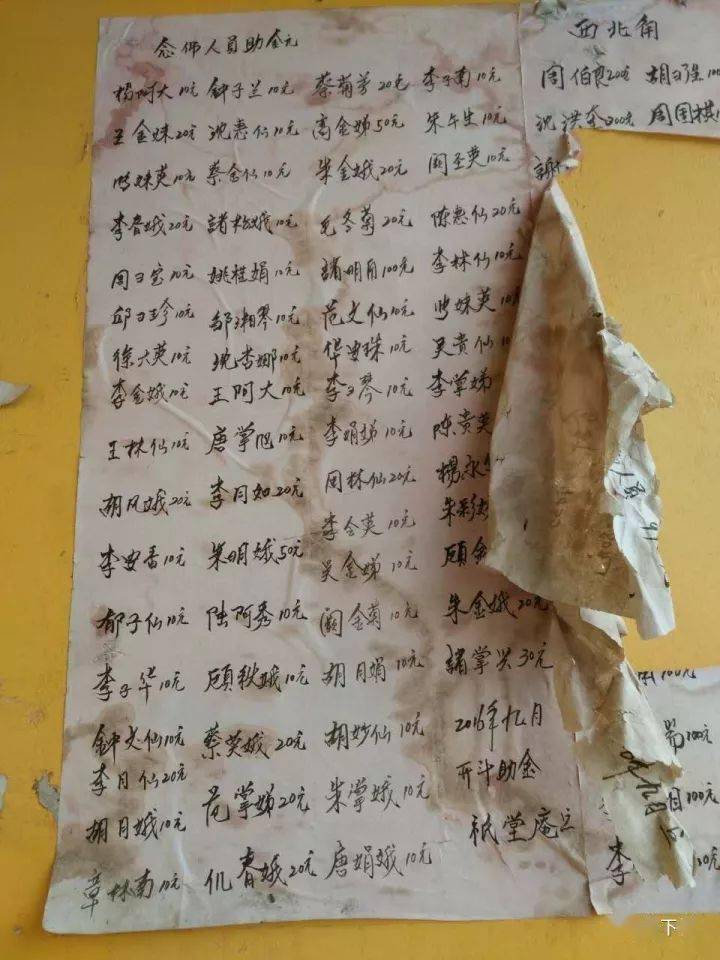 念佛人员助金元
杨阿大10元 钟子兰10元 蔡菊芳20元 李子南10元
王金妹20元 沈惠仙10元 高金娣50元 朱午生10元
妹英10元 蔡金仙10元 朱金娥20元 阎圣英10元
李春娥20元 诸松娥10元 毛冬菊20元 陈惠仙20元
周子宝10元 姚桂娟10元 诸明角100元 李林仙10元
邱子珍10元 邹湘琴10元 范文仙10元 妹英10元
徐六英10元 沈杏娜10元 华安珠10元 吴贵仙10元
李金娥10元 王阿大10元 李子琴10元 李掌娣
王林仙10元 唐掌旭10元 李娟娣10元 陈贵英
胡凤娥20元 李月如20元 周林仙20元 杨永
李安香10元 朱明娥50元 李全英10元 朱彩
郁子仙10元 陆阿秀10元 吴金娣10元 顾金
李子华10元 顾秋娥10元 阚金菊10元 朱金娥20元
钟文仙10元 蔡英娥20元 胡月娟10元 诸掌兴30元
李月仙20元 范掌娣20元 胡妙仙10元 2016年九月
胡月娥10元 仉春娥20元 朱掌娥10元 开斗助金
章林南10元 唐娟娥10元 祇堂庵立
西北角
周伯良20元 胡子强100
沈洪奎200元 周国棋1
谢
100元
100元
100元
李
下